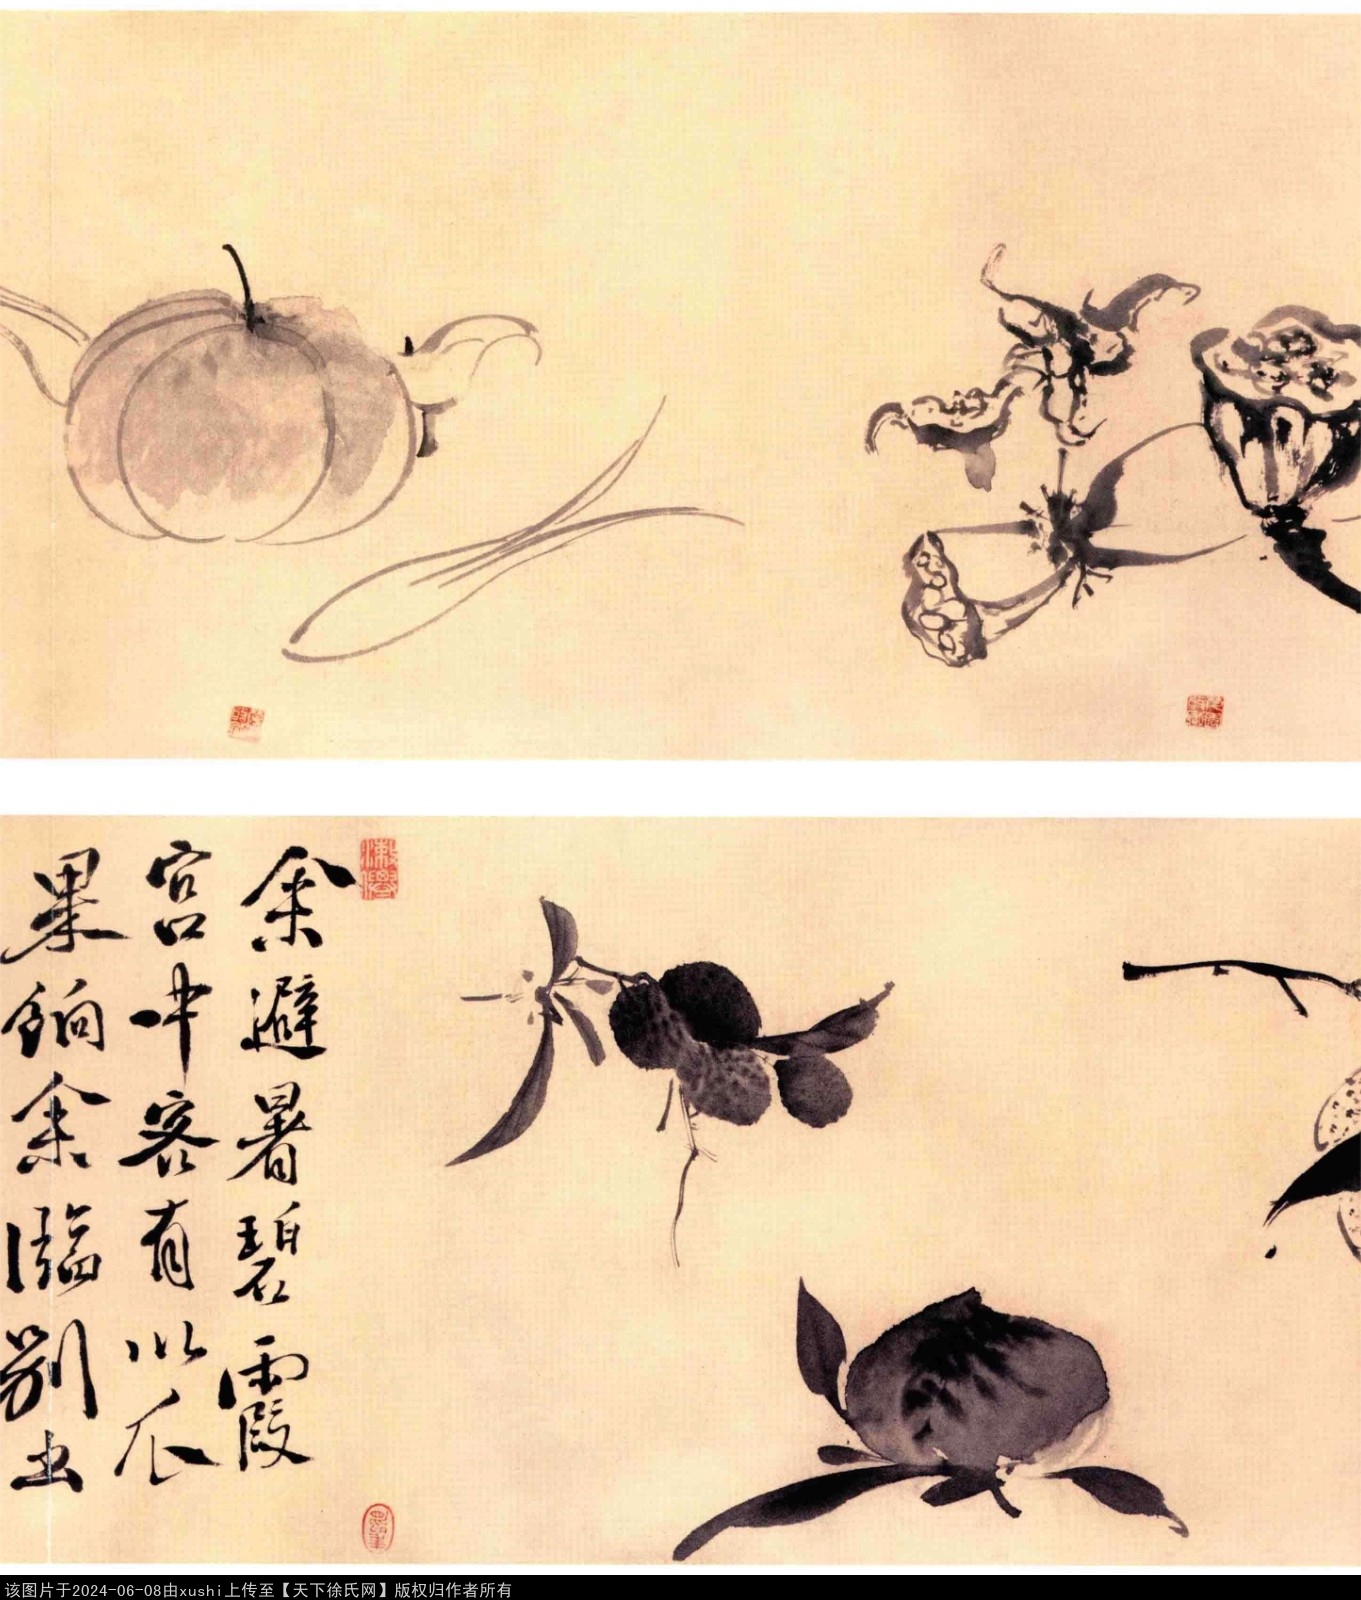 余避暑碧霞
宮中客有以瓜
果餉余臨別出
该图片于2024-06-08由xushi上传至【天下徐氏网】版权归作者所有